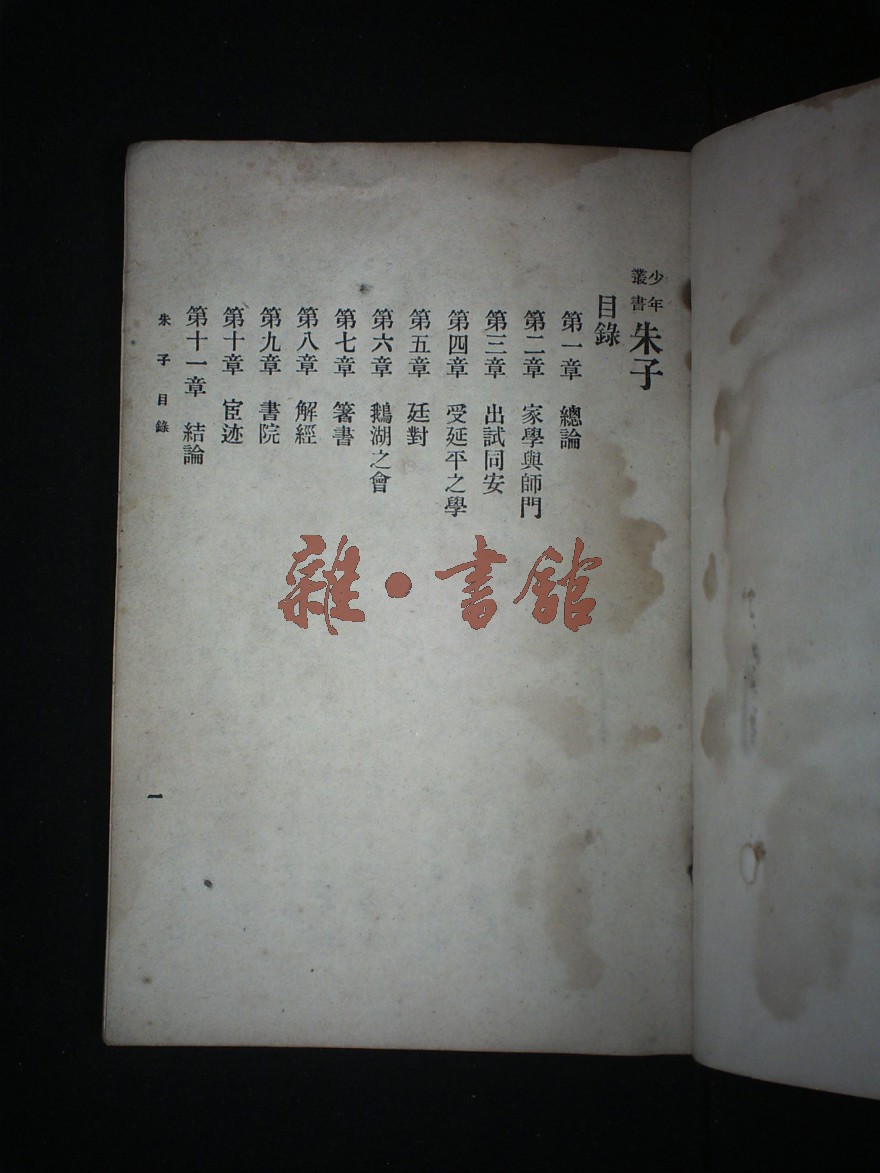 少年叢書 朱子
目錄
第一章 總論
第二章 家學與師門
第三章 出試同安
第四章 受延平之學
第五章 廷對
第六章 鵝湖之會
第七章 箸書
第八章 解經
第九章 書院
第十章 宦迹
第十一章 結論
朱子目錄
一
雜·書館